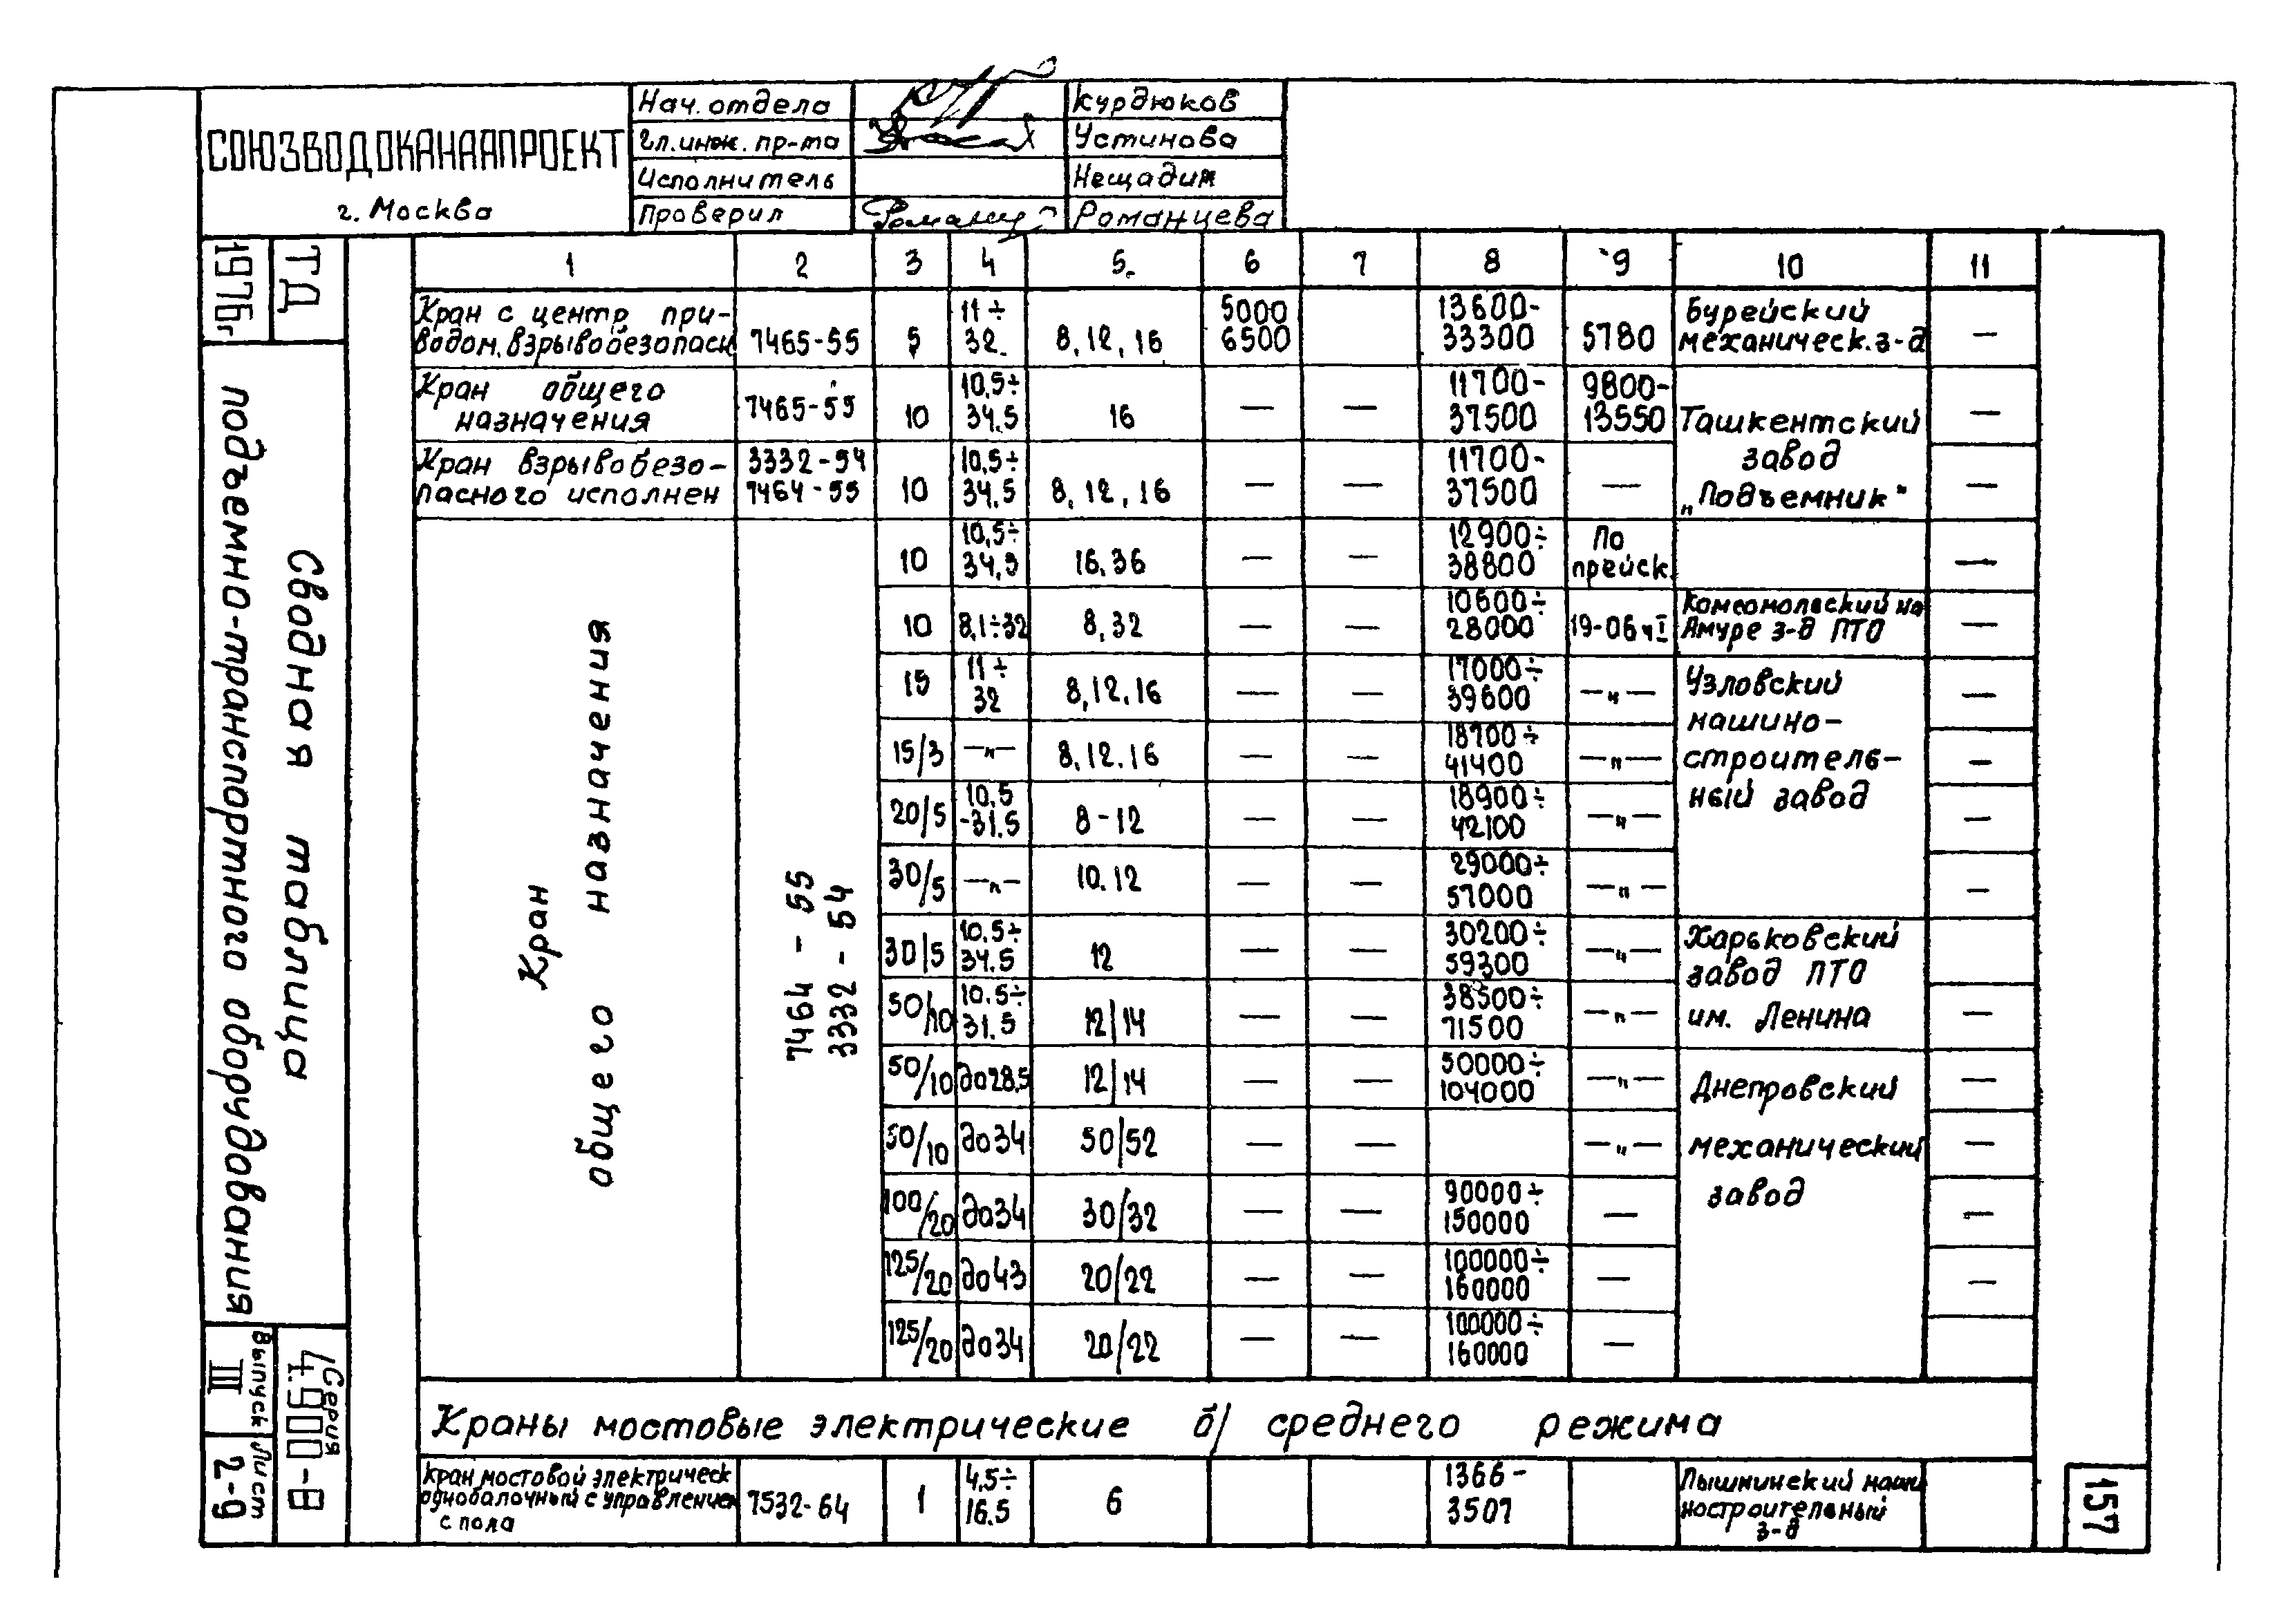 СОЮЗВОДОКАНАЛПРОЕКТ
г. Москва
Нач. отдела Курдюков
Гл. инж. пр-та Устинова
Исполнитель Нещадим
Проверил Романцева
1976г.
ТД
Сводная таблица
подъемно-транспортного оборудования
Серия
4.900-8
Выпуск
III
Лист
2-9
1 2 3 4 5 6 7 8 9 10 11
Кран с центр при-
водом, взрывобезопасн 7465-55 5 11÷
32 8, 12, 16 5000
6500 13600-
33300 5780 Бурейский
механическ. з-д —
Кран общего
назначения 7465-55 10 10,5÷
34.5 16 — — 11700-
37500 9800-
13550 Ташкентский
завод
„Подъемник" —
Кран взрывобезо-
пасного исполнен 3332-54
7464-55 10 10,5÷
34,5 8, 12, 16 — — 11700-
37500 — —
Кран
общего назначения
7464-55
3332-54
10 10,5÷
34,5 16, 36 — — 12900÷
38800 По
прейск. —
10 8,1÷32 8, 32 — — 10600÷
28000 19-06 ч I Комсомольский на
Амуре з-д ПТО —
15 11÷
32 8, 12, 16 — — 17000÷
39600 —"— Узловский
машино-
строитель-
ный завод —
15/3 —"— 8, 12. 16 — — 18700÷
41400 —"— —
20/5 10,5
-31.5 8-12 — — 18900÷
42100 —"— —
30/5 —"— 10. 12 — — 29000÷
57000 —"— —
30/5 10.5÷
34.5 12 — — 30200÷
59300 —"— Харьковский
завод ПТО
им. Ленина
50/10 10.5÷
31.5 12/14 — — 38500÷
71500 —"— —
50/10 до 28,5 12/14 — — 50000÷
104000 —"— Днепровский
механический
завод —
50/10 до 34 50/52 — — —"— —
100/20 до 34 30/32 — — 90000÷
150000 — —
125/20 до 43 20/22 — — 100000÷
160000 — —
125/20 до 34 20/22 — — 100000÷
160000 —
Краны мостовые электрические б/ среднего режима
Кран мостовой электрическ
однобалочный с управлением
с пола 7532-64 1 4,5÷
16.5 6 1366-
3507 Пышминский маши
ностроительный
з-д
157